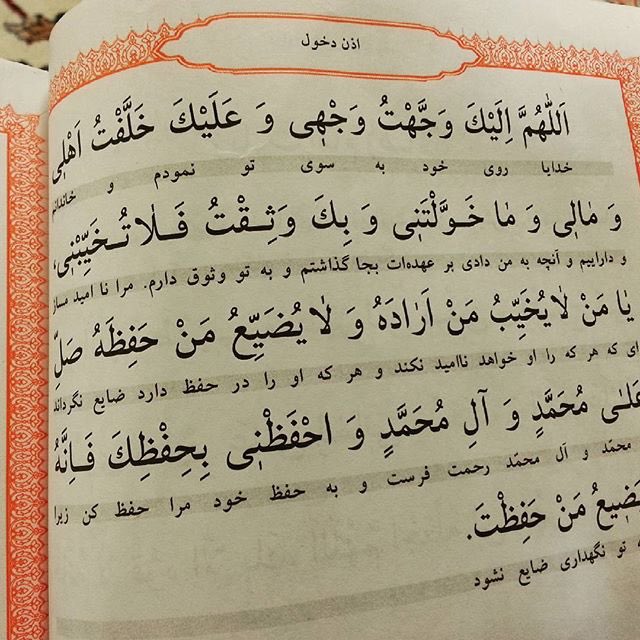 اذن دخول
اَللّٰهُمَّ اِلَيْكَ وَجَّهْتُ وَجْهٖى وَ عَلَيْكَ خَلَّفْتُ اَهْلٖى
خدایا روی خود به سوی تو نمودم و خاندانم
وَ مٰالٖى وَ مٰا خَوَّلْتَنٖى وَ بِكَ وَثِقْتُ فَلٰا تُخَيِّبْنٖى،
و داراییم و آنچه به من دادی بر عهده‌ات بجا گذاشتم و به تو وثوق دارم. مرا نا امید مساز
يٰا مَنْ لٰا يُخَيِّبُ مَنْ اَرٰادَهُ وَ لٰا يُضَيِّعُ مَنْ حَفِظَهُ صَلِّ
ای که هر که را او خواهد ناامید نکند و هر که او را در حفظ دارد ضایع نگرداند
عَلىٰ مُحَمَّدٍ وَ آلِ مُحَمَّدٍ وَ احْفَظْنٖى بِحِفْظِكَ فَاِنَّهُ
محمّد و آل محمّد رحمت فرست و به حفظ خود مرا حفظ کن زیرا
مَنْ حَفِظْتَ.
تو نگهداری ضایع نشود